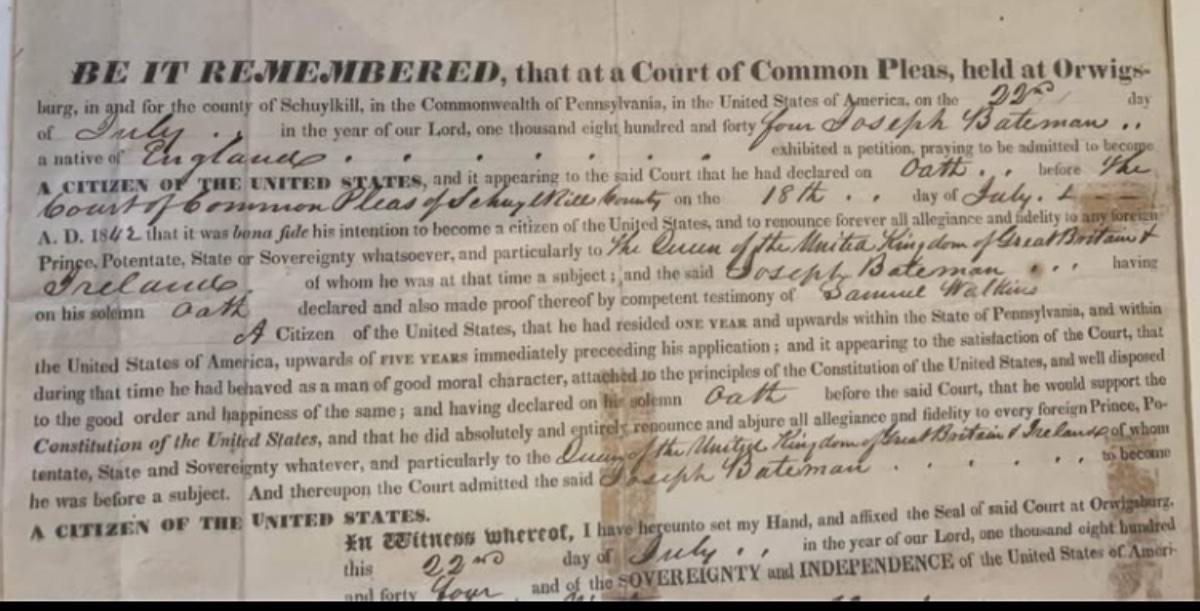 BE IT REMEMBERED, that at a Court of Common Pleas, held at Orwigs-
burg, in and for the county of Schuylkill, in the Commonwealth of Pennsylvania, in the United States of America, on the 22nd day
of July . , in the year of our Lord, one thousand eight hundred and forty four Joseph Bateman ..
a native of England . . . . . . . exhibited a petition, praying to be admitted to become
A CITIZEN OF THE UNITED STATES, and it appearing to the said Court that he had declared on Oath . . before the
Court of Common Pleas of Schuylkill County on the 18th . . day of July.
A. D. 1842 that it was bona fide his intention to become a citizen of the United States, and to renounce forever all allegiance and fidelity to any foreign
Prince, Potentate, State or Sovereignty whatsoever, and particularly to the Queen of the United Kingdom of Great Britain &
Ireland. of whom he was at that time a subject; and the said Joseph Bateman . . . having
on his solemn Oath declared and also made proof thereof by competent testimony of Samuel Walkins
A Citizen of the United States, that he had resided ONE YEAR and upwards within the State of Pennsylvania, and within
the United States of America, upwards of FIVE YEARS immediately preceeding his application; and it appearing to the satisfaction of the Court, that
during that time he had behaved as a man of good moral character, attached to the principles of the Constitution of the United States, and well disposed
to the good order and happiness of the same; and having declared on his solemn Oath before the said Court, that he would support the
Constitution of the United States, and that he did absolutely and entirely renounce and abjure all allegiance and fidelity to every foreign Prince, Po-
tentate, State and Sovereignty whatever, and particularly to the Queen of the United Kingdom of Great Britain & Ireland of whom
he was before a subject. And thereupon the Court admitted the said Joseph Bateman . . . . . . to become
A CITIZEN OF THE UNITED STATES.
In Witness whereof, I have hereunto set my Hand, and affixed the Seal of said Court at Orwigsburg,
this 22nd day of July . . in the year of our Lord, one thousand eight hundred
and forty four and of the SOVEREIGNTY and INDEPENDENCE of the United States of Ameri-